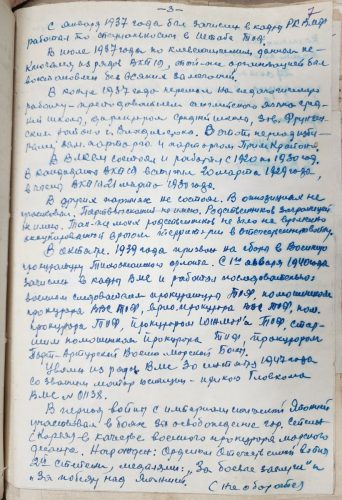 -3-
7
С января 1937 года был записан в кадры РККА
работал по специальности в Штабе ТОФ.
В июле 1937 года по клеветническим данным ис-
ключался из рядов ВКП(б), этой-же организацией был
восстановлен без всяких взысканий.
В конце 1937 года перешел на педагогическую
работу - преподавателем английского языка сред-
ней школы, директором средней школы, зав.
района г. Владивостока. В этот период
был парторгом и партторгом
В ВЛКСМ состоял и работал с 1920 по 1930 год.
В кандидаты ВКП(б) вступил 20 марта 1929 года,
в члены ВКП(б) 21 марта 1931 года.
В других партиях не состоял. В оппозициях не
участвовал. Партвзысканий не имею. Родственников за границей
не имею. Так-же мои родственники не жили на временно
оккупированной врагом территории в отечественную войну.
В октябре 1939 года призван на сборы в Военную
прокуратуру Тихоокеанского флота. С 1го января 1940 года
записан в кадры ВМС и работал последовательно
военным следователем прокуратуры ТОФ, помощником
прокурора ВВС ТОФ, врио прокурора ВВС ТОФ, пом.
прокурора ТОФ, прокурором ТОФ, стар-
шим помощником прокурора ТОФ, прокурором
Порт-Артурской Военно-Морской Базы.
Уволен из рядов ВМС 30 1947 года
со званием майор юстиции - приказ Главкома
ВМС № 0138.
В период войны с империалистической Японией
участвовал в боях за освобождение гор. Сейсин
(Корея) в качестве военного прокурора морского
десанта. Награжден: Орденом Отечественной войны
2ой степени, медалями: „За боевые заслуги" и
„За победу над Японией".
(на обороте)